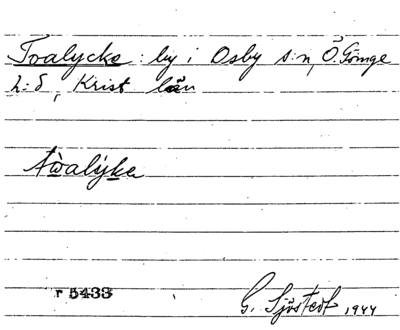 Tvalycke : by i Osby s:n, Ö. Göinge
h:d, Krist län
tẁalýka
r 5433
G. Sjöstedt 1944